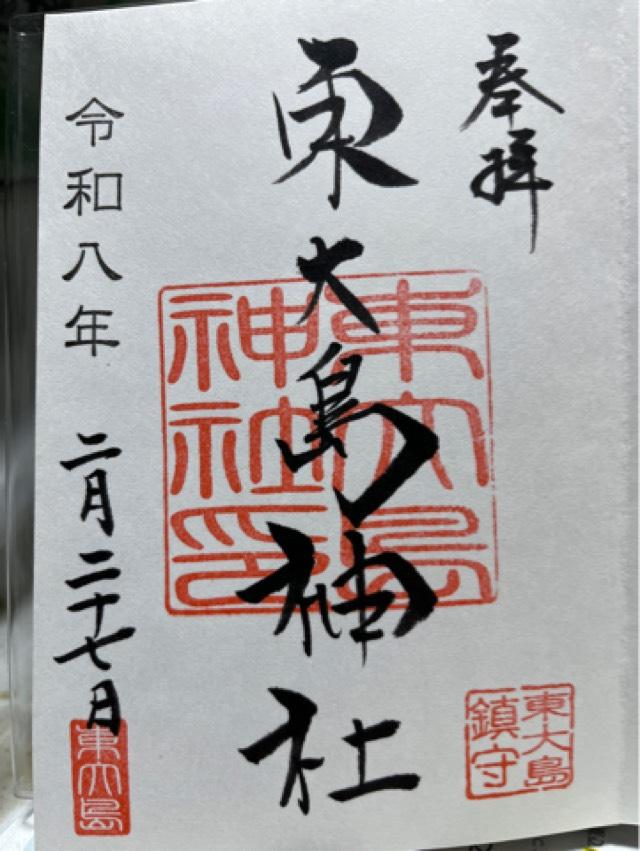 奉拝
東大島神社
東大島
神社印
令和八年 二月二十七日
東大島
鎮守
東大島